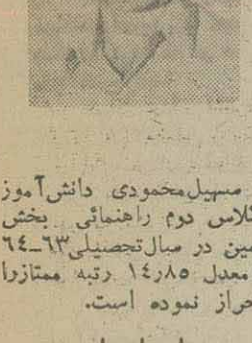 سهیل محمودی دانش‌آموز
کلاس دوم راهنمائی بخش
در سال تحصیلی ۶۳-۶۴
معدل ۱۴٫۸۵ رتبه ممتاز را
احراز نموده است.